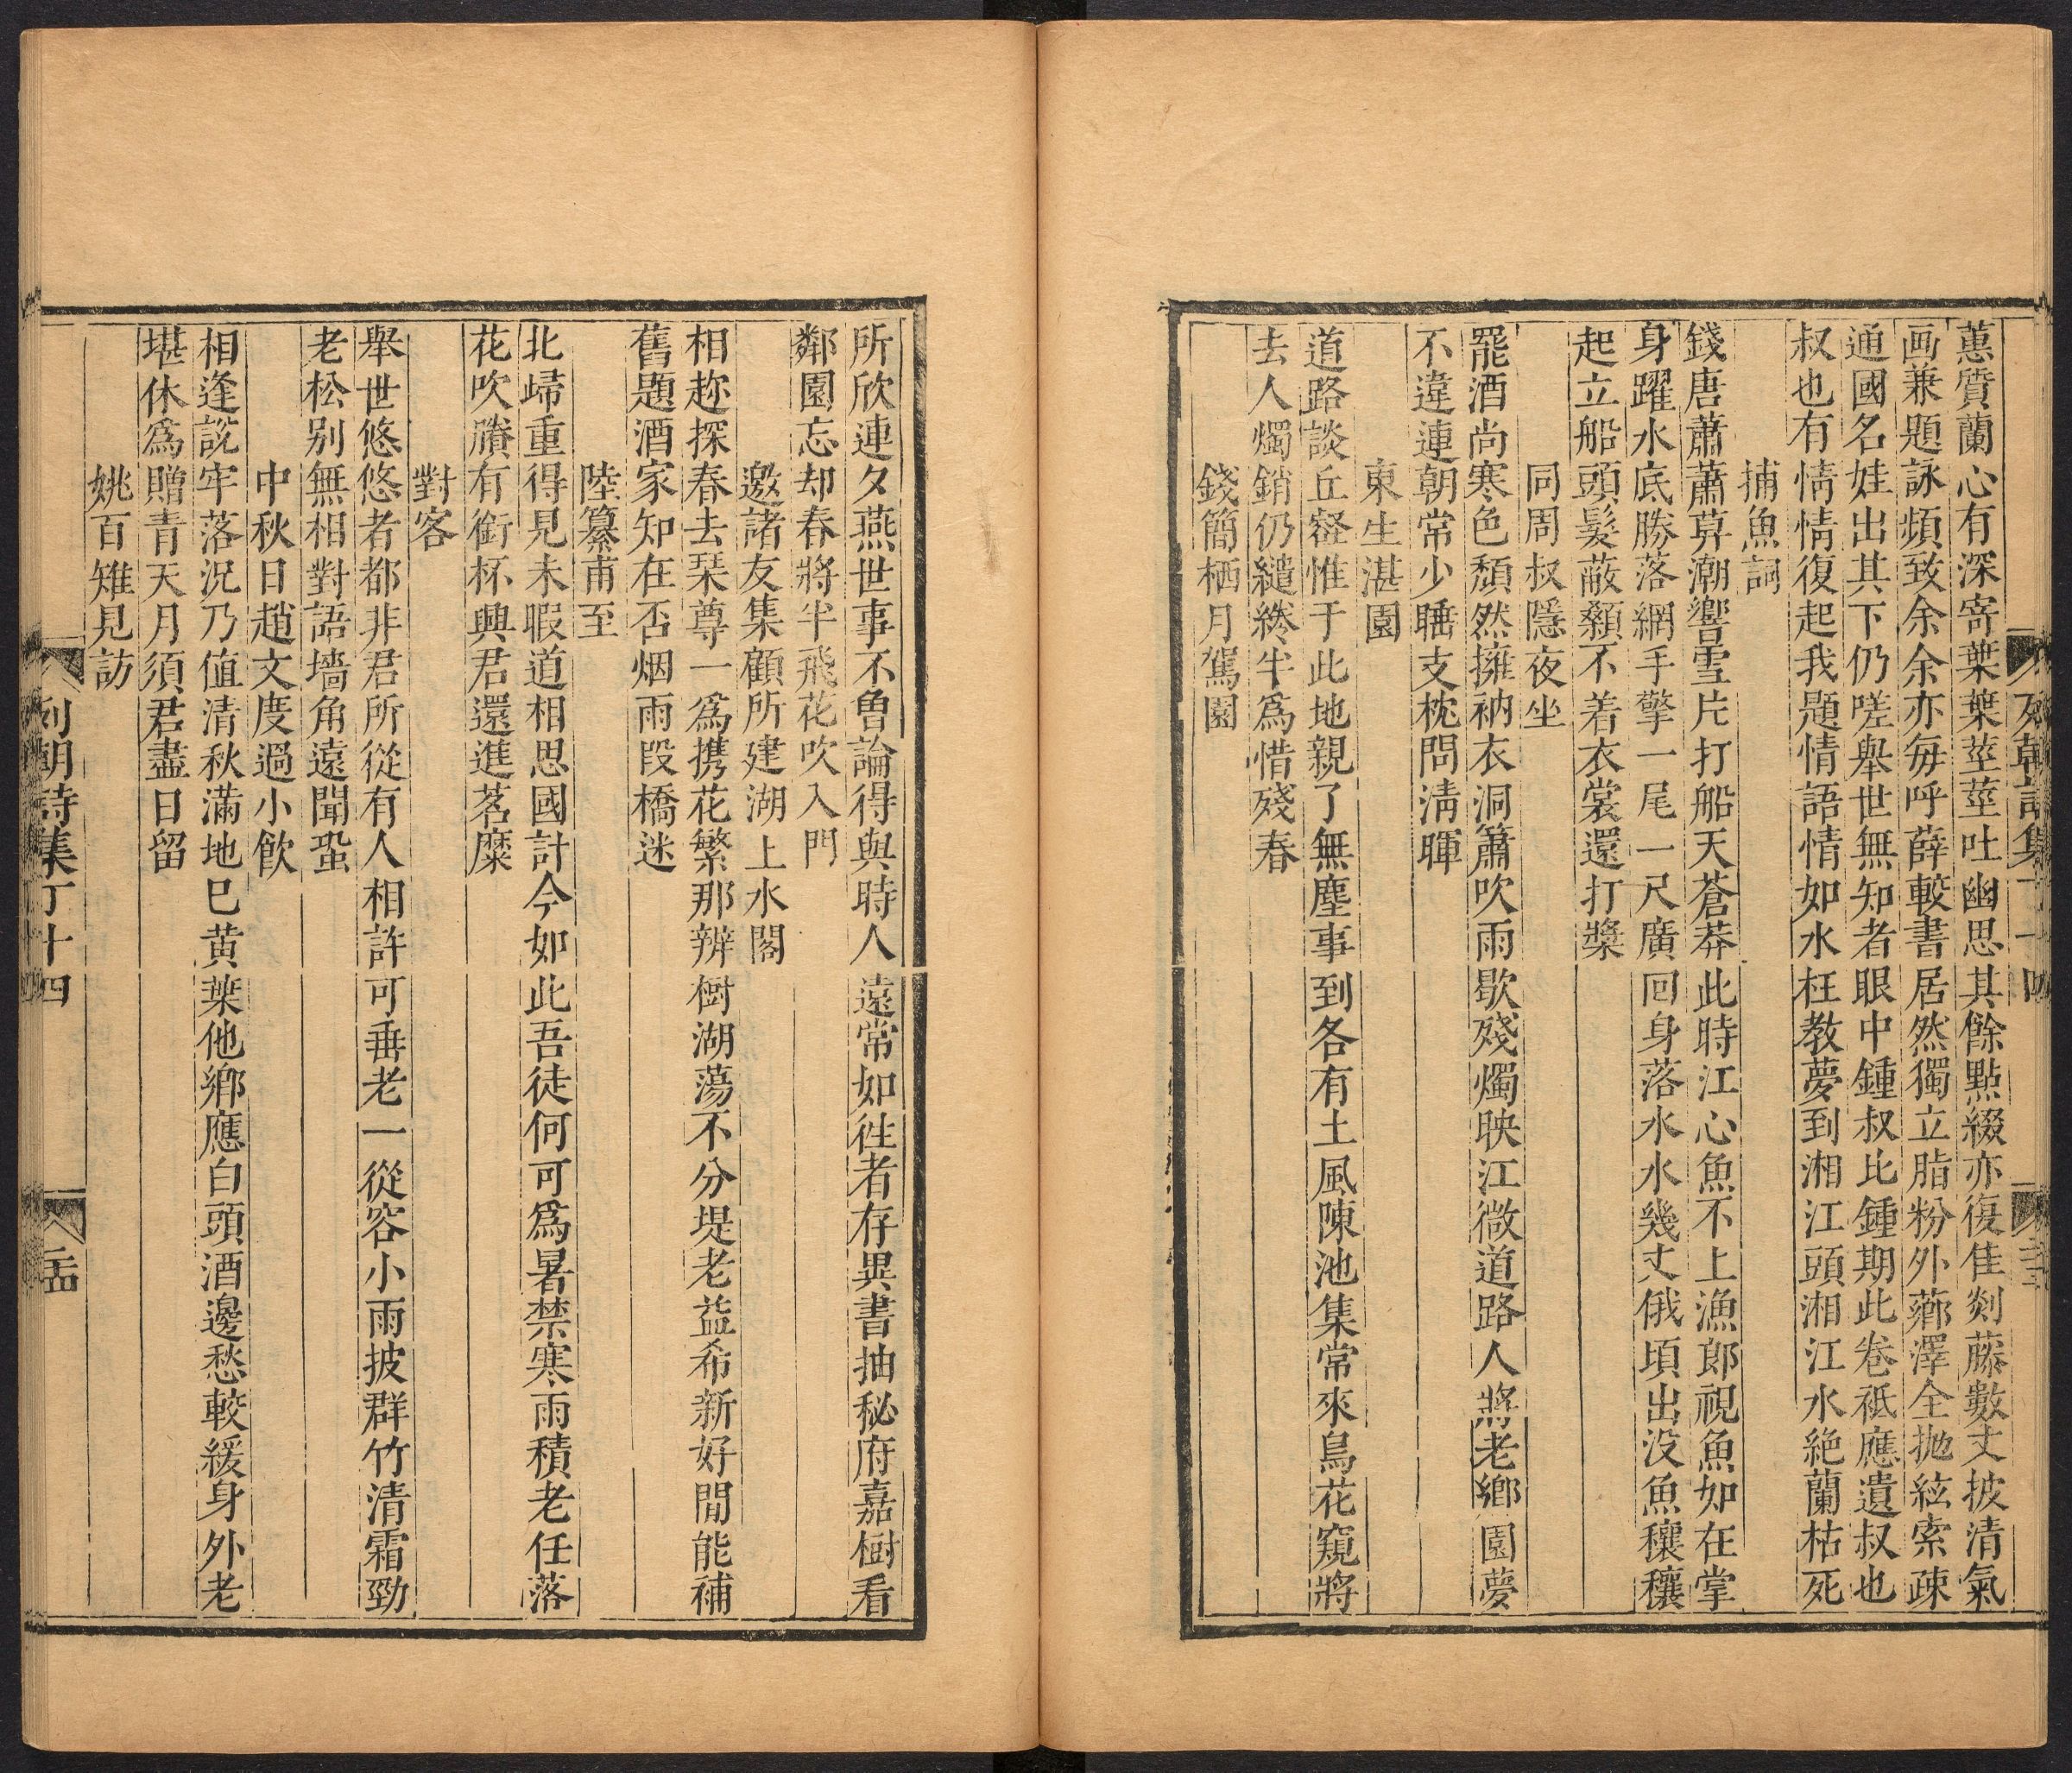 蕙質蘭心有深寄葉葉莖莖吐幽思其餘點綴亦復佳剡藤數丈披清氣
画兼題詠頻致余余亦每呼薛較書居然獨立脂粉外薌澤全抛絃索疎
通國名娃出其下仍嗟舉世無知者眼中鍾叔比鍾期此卷祗應遺叔也
叔也有情情復起我題情語情如水枉教夢到湘江頭湘江水絶蘭枯死
捕魚詞
錢唐蕭蕭葬潮響雪片打船天蒼莽此時江心魚不上漁郎視魚如在掌
身躍水底勝落網手擎一尾一尺廣回身落水水幾丈俄頃出没魚穰穰
起立船頭髮蔽顙不着衣裳還打槳
同周叔隱夜坐
罷酒尚寒色頹然擁衲衣洞簫吹雨歇殘燭映江微道路人將老鄉園夢
不違連朝常少睡支枕問清暉
東生湛園
道路談丘壑惟于此地親了無塵事到各有土風陳池集常來鳥花窺將
去人燭銷仍繾綣半爲惜殘春
錢簡栖月駕園
所欣連夕燕世事不曾論得與時人遠常如徃者存異書抽秘府嘉樹看
鄰園忘却春將半飛花吹入門
邀諸友集顧所建湖上水閣
相趂探春去琹尊一爲携花繁那辨樹湖蕩不分堤老益希新好閒能補
舊題酒家知在否烟雨段橋迷
陸纂甫至
北歸重得見未暇道相思國計今如此吾徒何可爲暑禁寒雨積老任落
花吹賸有銜杯興君還進茗糜
對客
舉世悠悠者都非君所從有人相許可垂老一從容小雨披群竹清霜勁
老松别無相對語墻角遠聞蛩
中秋日趙文度過小飲
相逢説牢落況乃值清秋滿地巳黄葉他鄉應白頭酒邊愁較緩身外老
堪休爲贈青天月須君盡日留
姚百雉見訪
列朝詩集丁十四